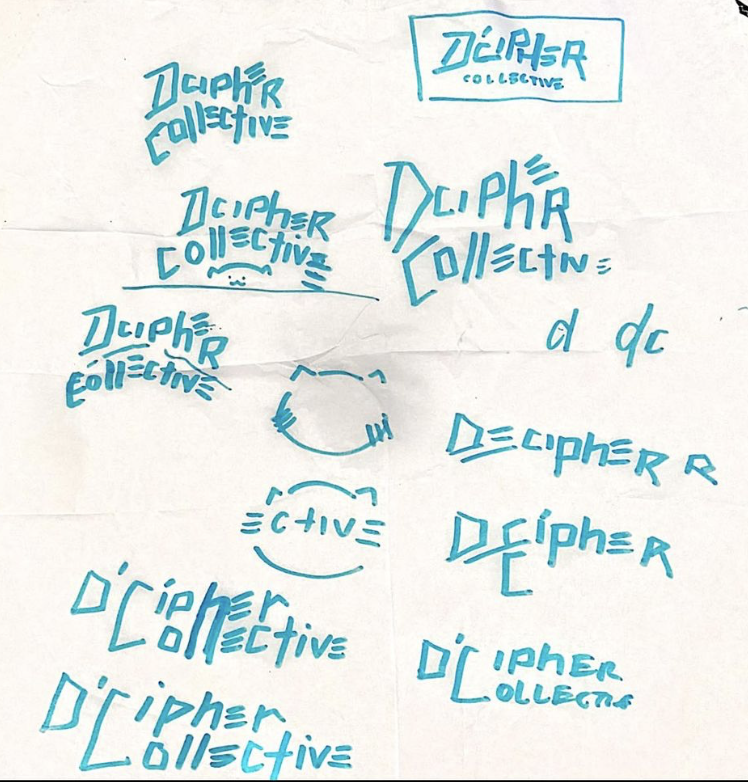 DciphER
CollEctivE
D'CIPHER
COLLECTIVE
DcIphER
CollEctivE
DcIPhER
CollEctIvE
DciphER
CollEctIvE
d dc
DEcIphER R
EctIvE
DEcIphER
C
D'CiphEr
CollEctivE
D'CIphER
CollEctIv
D'CiphEr
CollEctivE